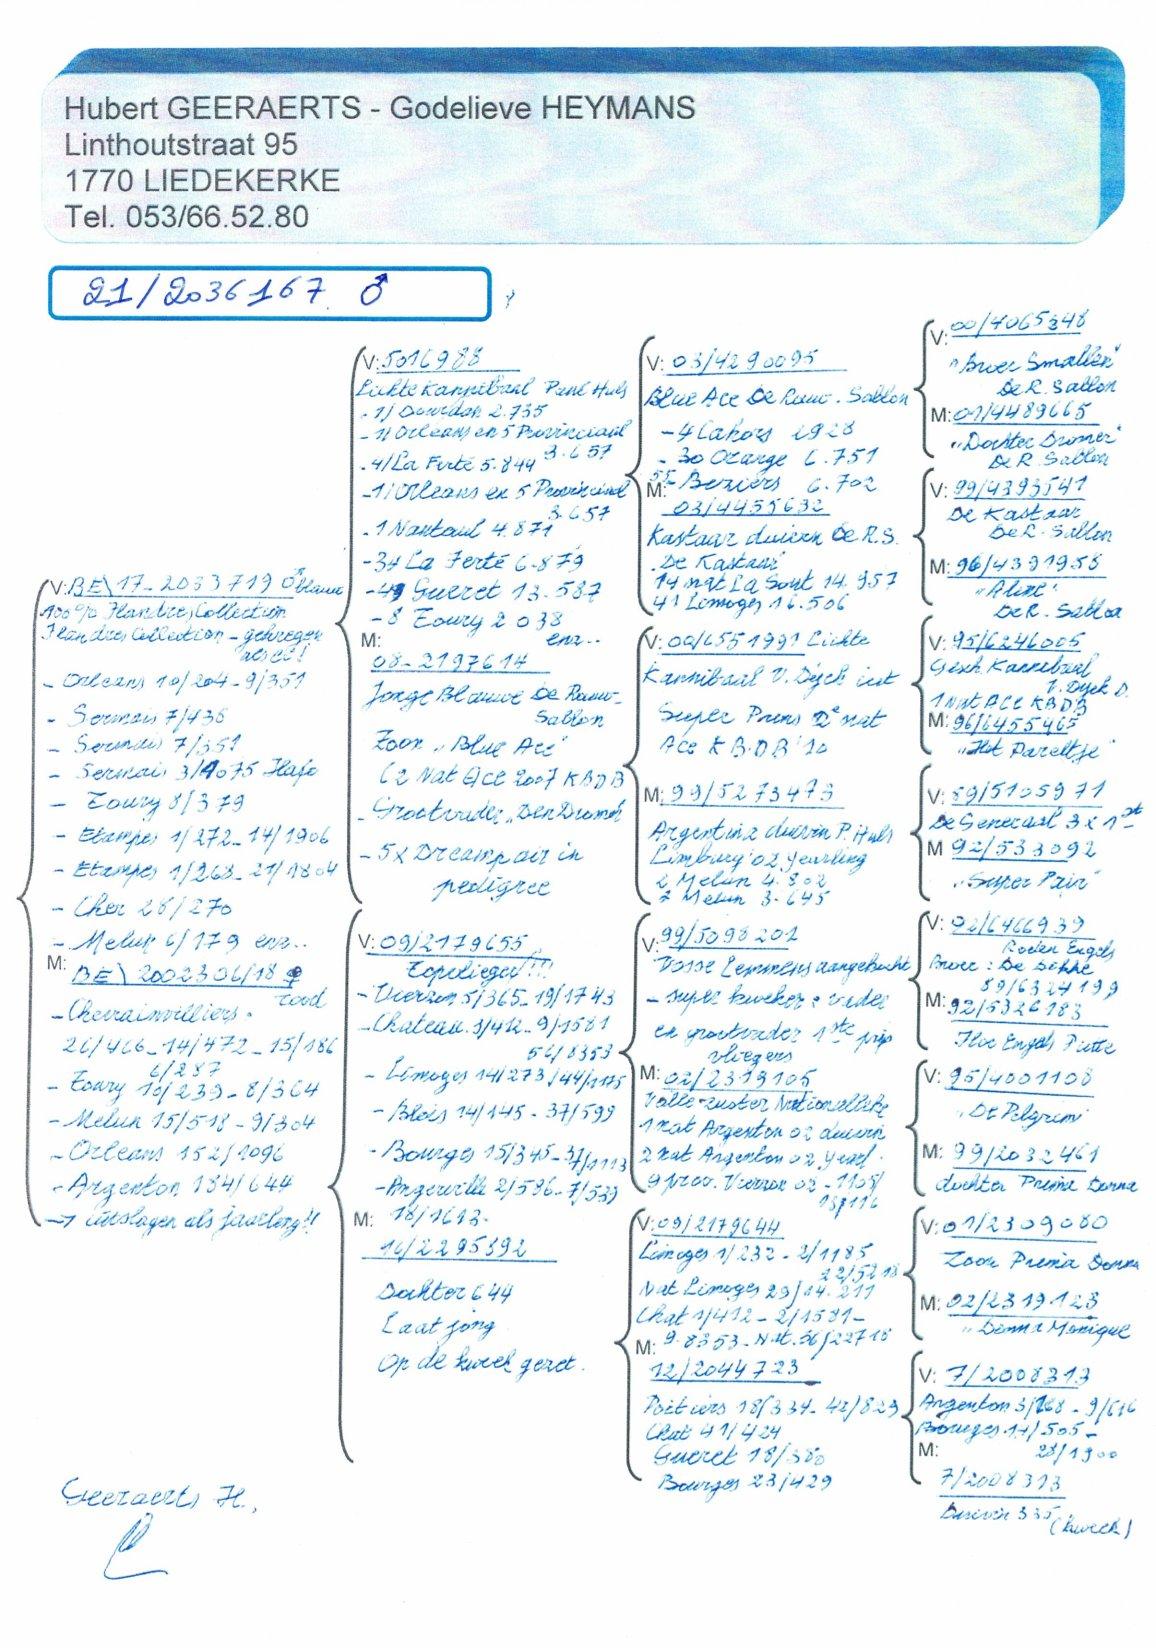 Hubert GEERAERTS - Godelieve HEYMANS
Linthoutstraat 95
1770 LIEDEKERKE
Tel. 053/66.52.80
21/2036167 ♂
V: BE\17-2033719 ♂ blauw
100% Flandres Collection
Flandres Collection - gekregen
als ei!
- Orleans 10/204 - 9/351
- Sermais 7/436
- Sermais 7/351
- Sermais 3/4075 Hafo
- Toury 8/379
- Etampes 1/272 - 14/1906
- Etampes 1/268 - 21/1804
- Cher 28/270
- Melun 6/179 enz..
M: BE\2002306/18 ♀
rood
- Chevrainvilliers.
26/466 - 14/472 - 15/186
6/287
- Toury 10/239 - 8/364
- Melun 15/518 - 9/304
- Orleans 152/1096
- Argenton 184/644
→ uitslagen als jaarling!!
V: 5016988
Lichte Kannibaal Paul Huls
. 1/ Dourdan 2.735
- 1/ Orleans en 5 Provinciaal
3.657
. 4/La Ferté 5.844
- 1/ Orleans en 5 Provinciaal
3.657
. 1 Nanteuil 4.871
- 34 La Ferté 6.879
- 49 Gueret 13.587
- 8 Toury 2038
enz..
M:
08-2197614
Jonge Blauwe De Rauw-
Sablon
Zoon "Blue Ace"
(2 Nat Ace 2007 KBDB
- Grootvader "Den Dromer
- 5x Dreampair in
pedigree
V: 09/2179655
Topvlieger!!!
- Vierzon 5/365 - 19/1743
- Chateau. 3/412 - 9/1581
56/8353
- Limoges 14/273/44/1175
- Blois 14/145 - 37/599
- Bourges 15/345 - 37/1113
- Angerville 2/586 - 7/539
M: 18/1613.
16/2295392
Dochter 644
Laat jong
Op de kweek gezet.
V: 03/4290095
Blue Ace De Rauw-Sablon
- 4 Cahors 1928
- 30 Orange 6.751
55 Beziers 6.702
M:
03/4455632
Kastaar duivin De R.S.
. De Kastaar
14 nat La Sout 14.957
41 Limoges 16.506
V: 00/6551991 Lichte
Kannibaal V. Dijck uit
Super Prins 2e nat
Ace KBDB '10
M: 99/5273473
Argentina duivin P. Huls
Limburg '02 yearling
2 Melun 4.802
7 Melun 3.645
V: 99/5098201
Vosse Lemmens aangekocht
- super kweker: vader
en grootvader 1ste prijs
vliegers
M: 02/2319105
Volle zuster Nationalleke
1 nat Argenton 02 duivin
2 nat Argenton 02 yearl.
9 prov. Vierzon 02 - 1108/
V: 09/2179644
Limoges 1/232 - 2/1185
22/5218
Nat Limoges 29/14.211
Chat 1/412 - 2/1581 -
9.8353 - Nat. 56/22718
M:
12/2044723
Poitiers 18/334 - 42/823
Chat 41/424
Gueret 18/380
Bourges 23/429
V: 00/4065348
"Broer Smallen"
De R. Sablon
M: 01/4489665
"Dochter Dromer"
De R. Sablon
V: 99/4393541
De Kastaar
De R. Sablon
M: 96/4391958
"Aline"
De R. Sablon
V: 95/6246005
Gesch. Kannibaal
V. Dijck D.
1 Nat Ace KBDB
M: 96/6455465
"Het Pareltje"
V: 89/5105971
De Generaal 3x 1ste
M 92/533092
"Super Pair"
V: 92/6466939
Roden Engels
Broer: De Dikke
89/6324199
M: 92/5326183
Floc Engels Putte
V: 95/4001108
"De Pelgrim"
M: 99/2032461
dochter Prima Donna
V: 01/2309080
Zoon Prima Donna
M: 02/2319123
"Donna Monique
V: 7/2008313
Argenton 3/168 - 9/616
Bourges 17/505 -
M: 28/1900
7/2008313
Duivin 335
(kweek)
Geeraerts H.